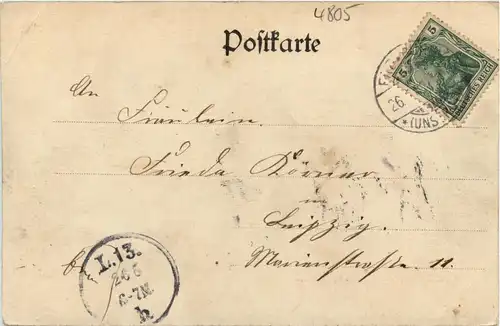 4805
Postkarte
5 5
26
*(UNS
An
Fräulein.
Frieda Körner
in
Leipzig.
Marienstraße 11.
L.13.
26 6
6-7N.
b